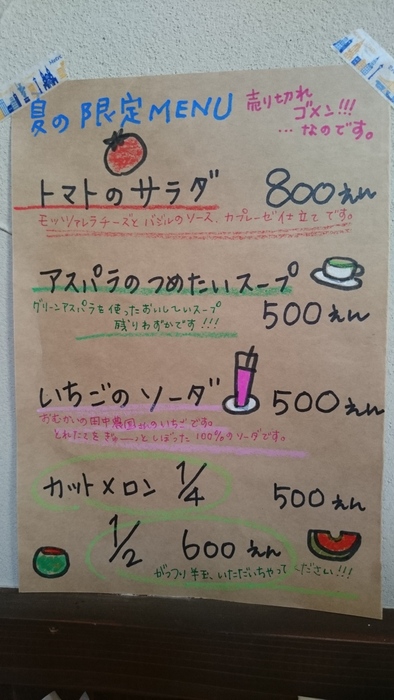 夏の限定MENU
売り切れ
ゴメン!!!
...なのです。
トマトのサラダ 800えん
モッツァレラチーズとバジルのソース、カプレーゼ仕立てです。
アスパラのつめたいスープ
500えん
グリーンアスパラを使ったおいしいスープ
残りわずかです!!!
いちごのソーダ 500えん
おむかいの田中農園さんのいちごです。
とれたてをぎゅーっとしぼった100%のソーダです。
カットメロン 1/4 500えん
1/2 600えん
がっつり半玉、いただいちゃってください!!!